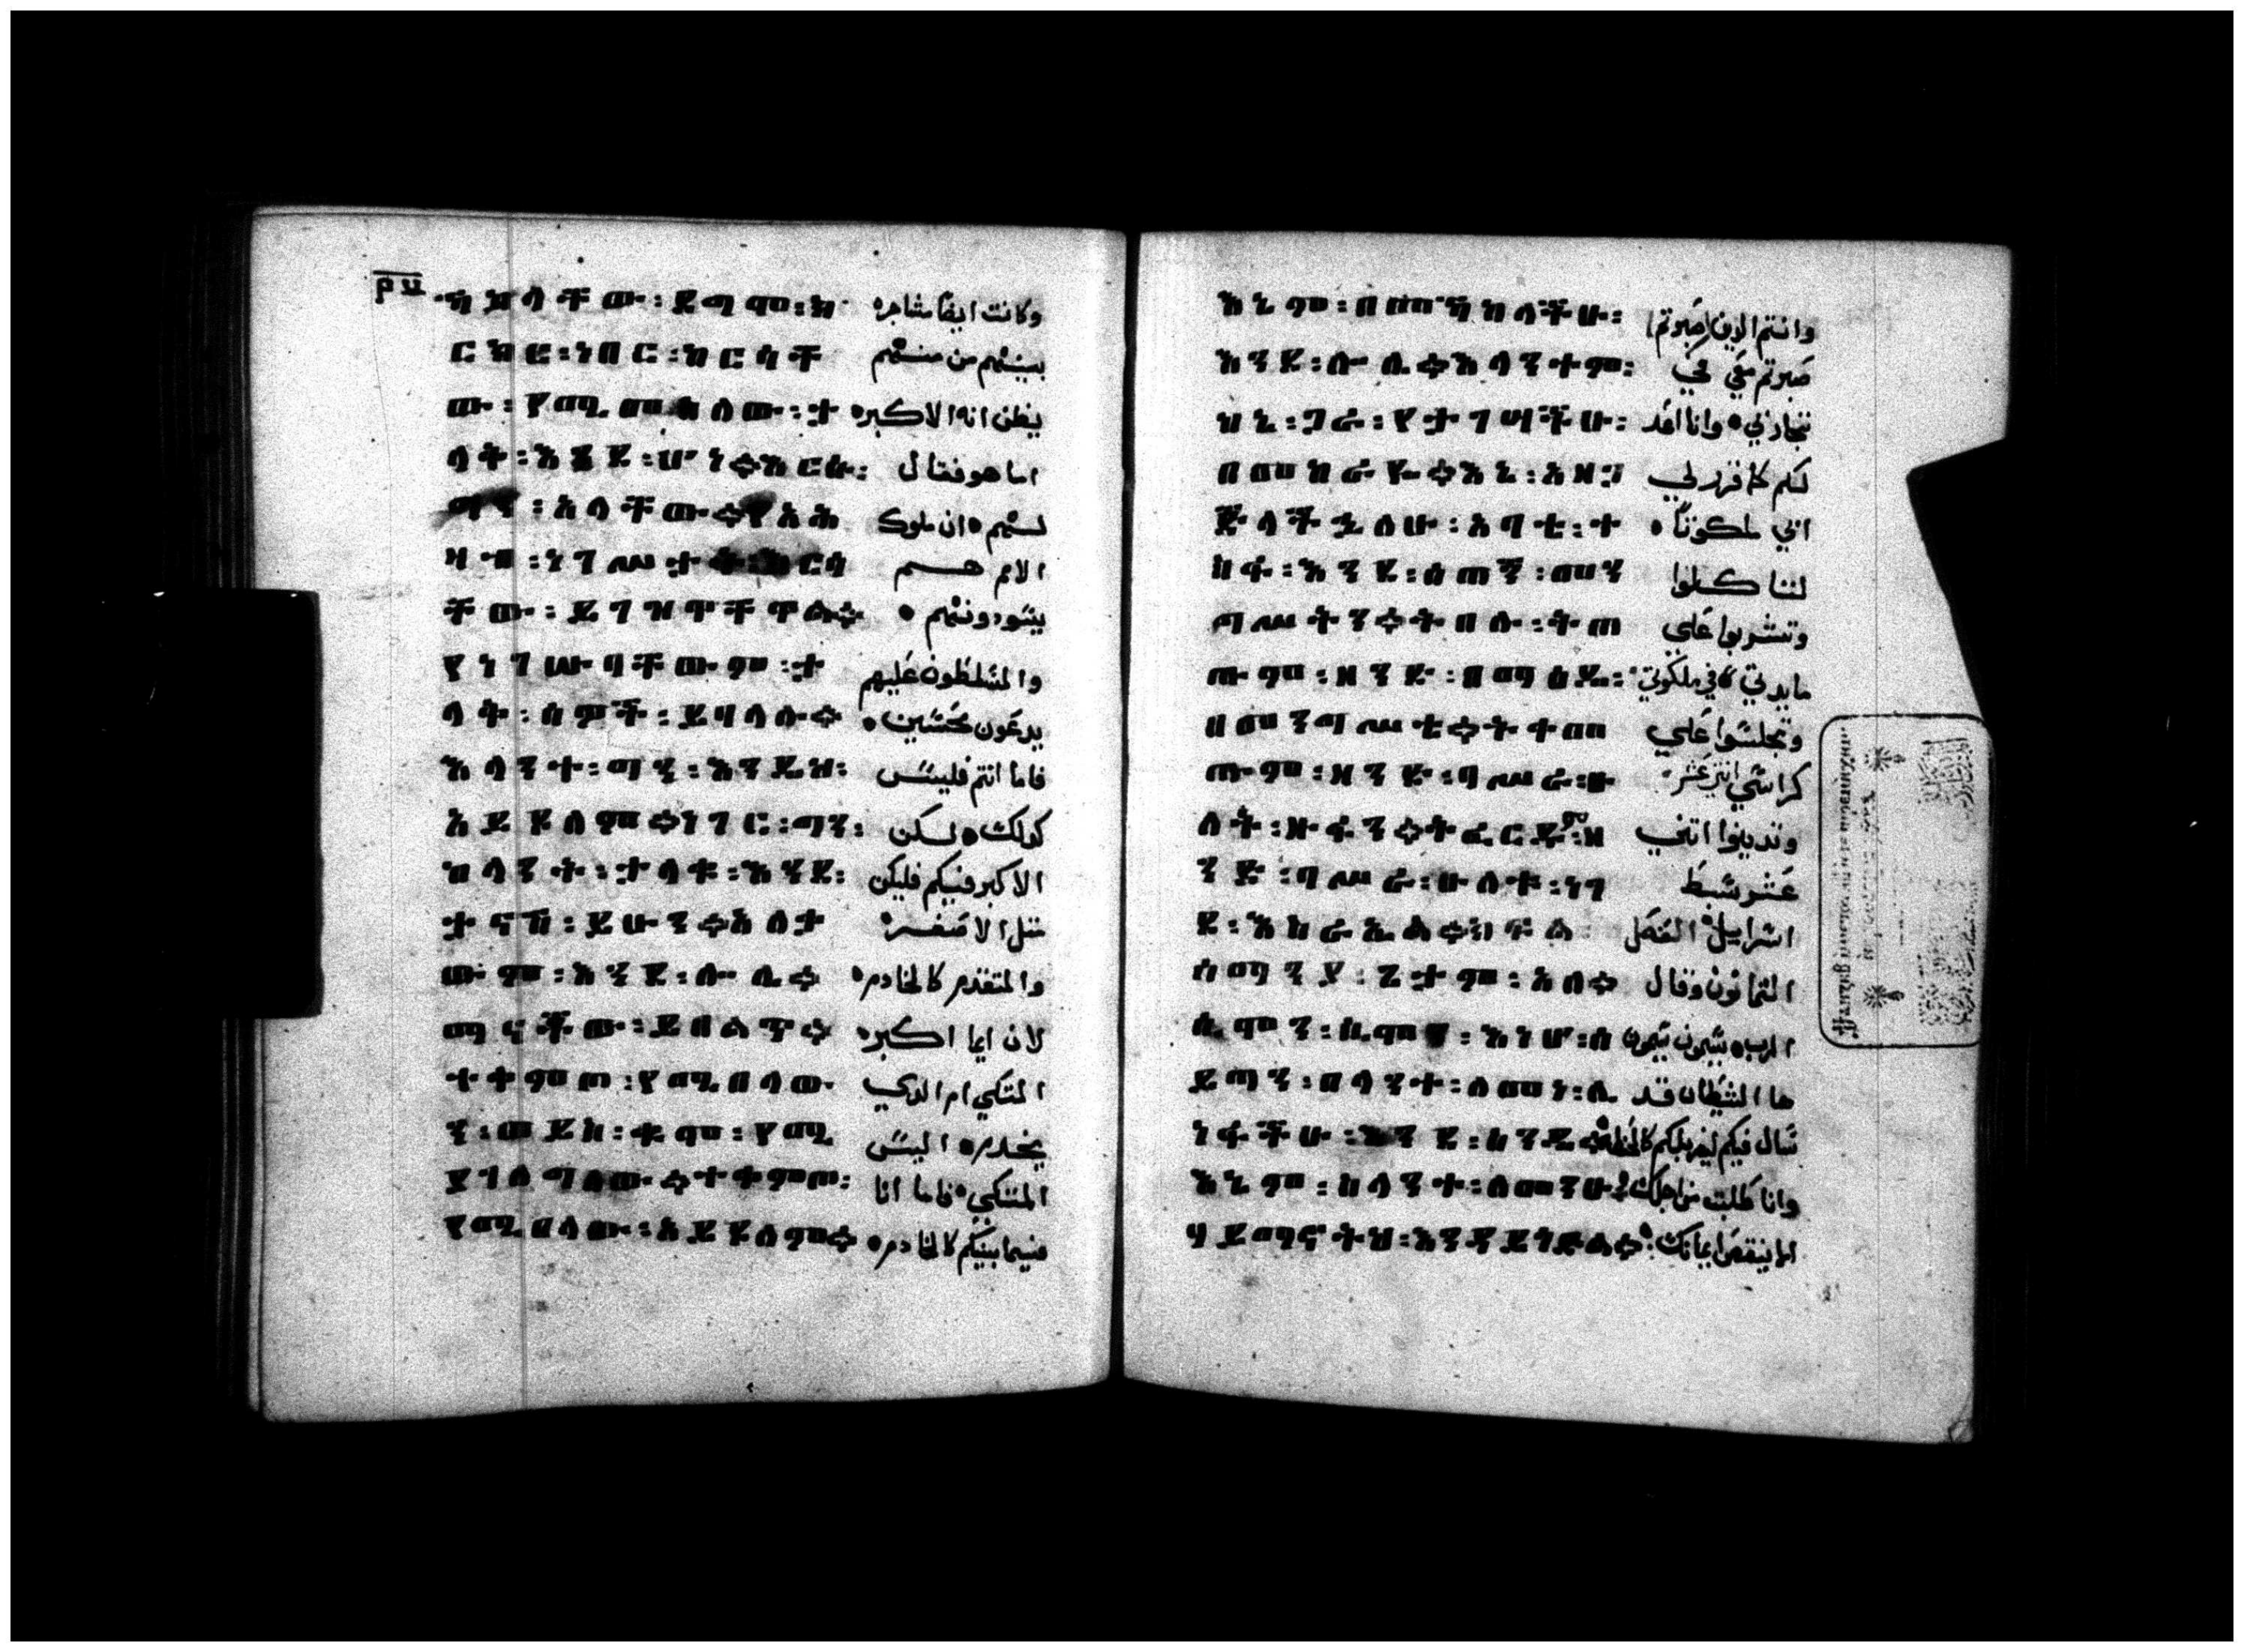 ካከላቸው፡ ደግሞ፡ክ وكانت ايضا مشاجره
ርክር፡ነበር፡ከርሳቸ بينهم من منهم
ው፡የሚመስለው፡ት يظن انه الاكبر
ላቅ፡እንዲሆን።እርሱ፡ اما هو فقال
ግን፡አላቸው።የአሕ لهم ان ملوك
ዛብ፡ነገሥታት፡በርሳ الامم هم
ቸው፡ይገዛሉ። يسودونهم
የነገሡባቸውም፡ት والمسلطون عليهم
ላቅ፡ሰዎች፡ይባላሉ። يدعون محسنين
እላንተ፡ግን፡እንዲህ፡ فاما انتم فليس
አይደለም።ነገር፡ግን፡ كذلك لكن
ከላንተ፡ትላቁ፡እንደ፡ الاكبر فيكم فليكن
ታናሽ፡ይሁን።አለት مثل الاصغر
ውም፡እንደ፡ሎሌ። والمتقدم كالخادم
ማናቸው፡ይበልጥ። لان ايما اكبر
ተቀምጦ፡የሚበላው المتكي ام الذي
ን፡ወይስ፡ቁሞ፡የሚ يخدم اليس
ያገለግለው።ተቀምጦ፡ المتكي فاما انا
የሚበላው፡አይደለም። فيما بينكم كالخادم
እኔም፡በመካከላችሁ፡ وانتم الذين صبرتم
እንደ፡ሎሌ።እላንተም፡ صبرتم معي في
ከኔ፡ጋራ፡የታገሣችሁ፡ تجاربي وانا اعد
በመከራዬ።እኔ፡አዘጋ لكم كما قرر لي
ጅላችኋለሁ፡አባቴ፡እ ابي ملكوتا
ኪሩ፡እንደ፡ሰጠኝ፡መን لتاكلوا
ግሥትን።ትበሉ፡ትጠ وتشربوا علي
ጡም፡ዘንድ፡በማዕዴ፡ مايدتي في ملكوتي
በመንግሥቴ።ትቀመ وتجلسوا علي
ጡም፡ዘንድ፡ባሥራ፡ሁ كراسي اثني عشر
ለት፡ዙፋን።ትፈርዱም፡ዘ وتدينوا اثني
ንድ፡ባሥራ፡ሁለት፡ነገ عشر سبط
ደ፡እስራኤል።ክፍል اسراييل الفصل
ሰማንያ፡ጌታም፡አለ። الثمانون وقال
ሲሞን፡ሲሞን፡እነሆ፡ሰ الرب سيمون سيمون
ይጣን፡በላንተ፡ለመነ፡ሊ ها الشيطان قد
ነፋችሁ፡እንደ፡ስንዴ። سال فيكم ليغربلكم كالحنطه
እኔም፡ስላንተ፡ለመንሁ። وانا طلبت من اجلك
ሃይማኖትህ፡እንዳይጎድል። الا ينقص ايمانك